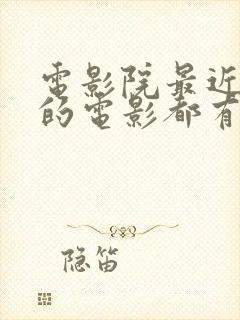 电影院最近
的电影都有
隐笛